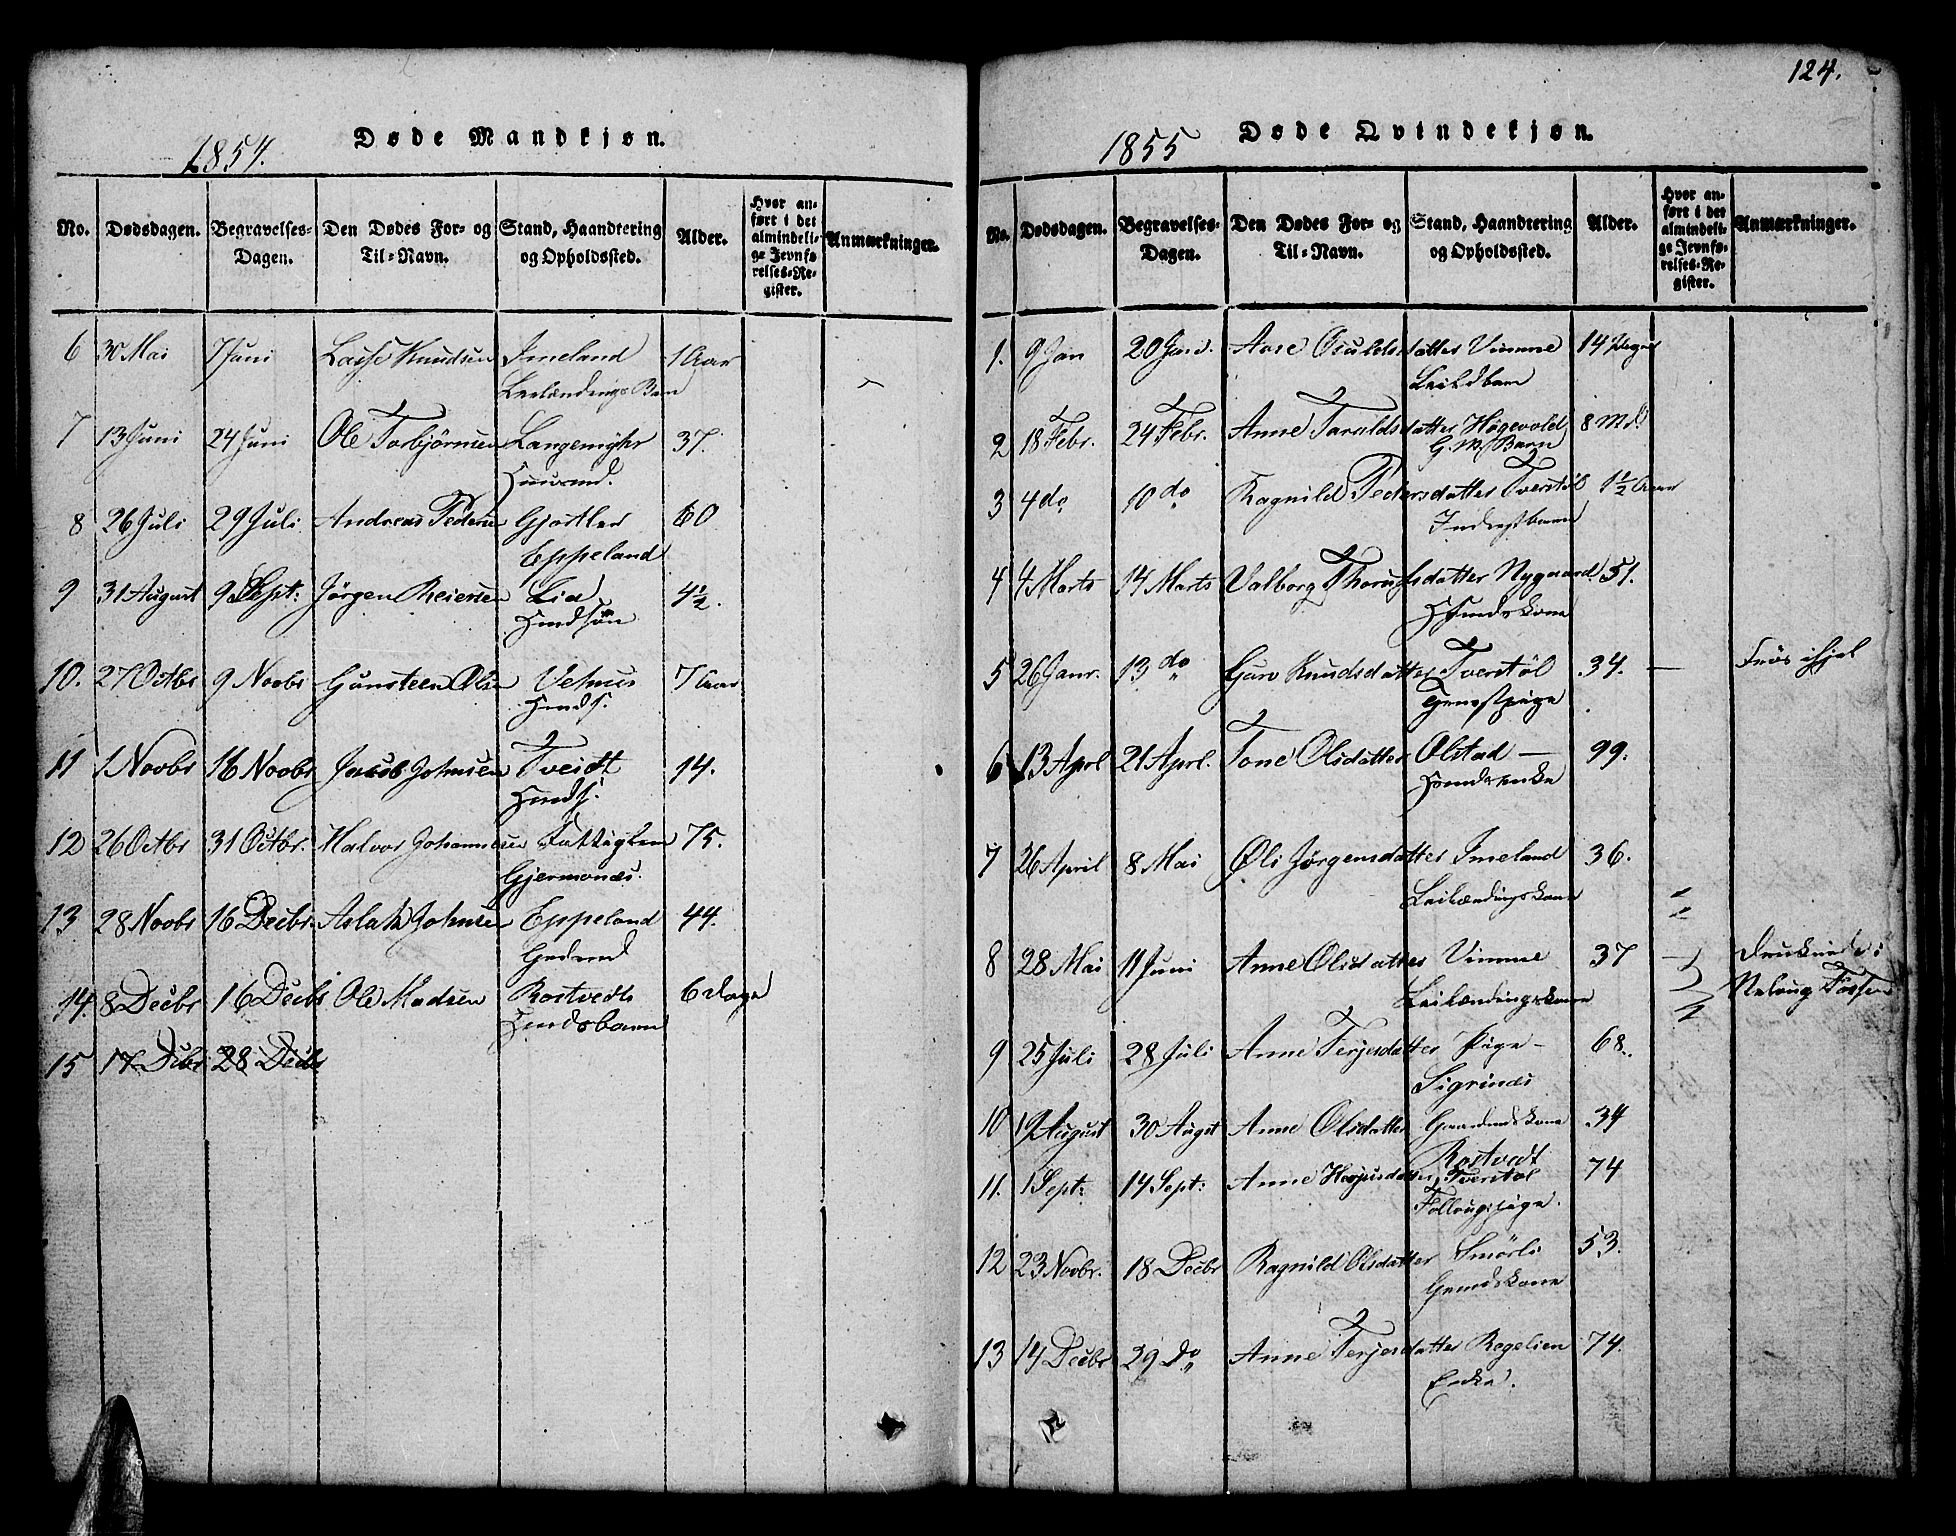 1854.
Døde Mandkjøn.
No. Dødsdagen. Begravelses-Dagen. Den Dødes For- og Til-Navn. Stand, Haandtering og Opholdssted. Alder. Hvor anført i det almindelige Jevnførelses-Register. Anmærkninger.
6 30 Mai 7 Juni Lasse Knudsen Imeland 1 Aar
Leilændings Barn
7 13 Juni 24 Juni Ole Torbjörnsen Langemyhr 37.
Huusmd.
8 26 Juli 29 Juli Andreas Pedersen Gjörtler 60
Eppeland
9 31 August 9 Sept: Jørgen Reiersen Lia 4½.
Hmdsøn
10. 27 Octbr 9 Novbr Gunsteen Olsen Vehus 7 Aar
Hmds.
11 1 Novbr 16 Novbr Jacob Johnsen Tveidt 14.
Hmds.
12 26 Octbr 31 Octbr. Halvor Johannesen Fattiglem 75.
Gjermonæs.
13 28 Novbr 16 Decbr. Aslak Johnsen Eppeland 44.
Gdmd
14. 8 Decbr 16 Decbr Ole Madsen Rostvedt 6 Dage
Hmdsbarn
15 17 Decbr 28 Decbr
124.
1855
Døde Qvindekjøn.
No. Dødsdagen. Begravelses-Dagen. Den Dødes For- og Til-Navn. Stand, Haandtering og Opholdssted. Alder. Hvor anført i det almindelige Jevnførelses-Register. Anmærkninger.
1. 9 Jan 20 Jan. Aase Osuldsdatter Vimme 14 Dage
Leildbarn
2 18 Febr. 24 Febr. Anne Taraldsdatter Høgevold 8 Md.
G. M. Barn
3 4 do 10 do Ragnild Pedersdatter Tverstöl 1½ Aar
Inderstbarn
4 4 Marts 14 Marts Valborg Thorufsdatter Nygaard 51.
Hmdskone
5 26 Janr. 13 do Guro Knudsdatter Tverstöl 34. — Frös ihjel
Tjenestpige
6 13 Aprl 21 Aprl. Tone Olsdatter Olstad — 99.
Hmdsenke
7 26 April 8 Mai Øli Jørgensdatter Imeland 36.
Leilændingskone
8 28 Mai 11 Juni Anne Olsdatter Vimme 37 — Druknede i
Leilændingskone Nelaug Fossen
9 25 Juli 28 Juli Anne Terjesdatter Pige — 68.
Sigrinæs
10 19 August 30 Augst Anne Olsdatter Gaardmdskone 34
Rostvedt
11. 1 Sept: 14 Sept: Anne Harjusdatter Tverstøl 74
Pige.
12 23 Novbr. 18 Decbr Ragnild Olsdatter Smörli 53.
Gmdskone
13 14 Decbr 29 Do Anne Terjesdatter Rogelien 74.
Enke.